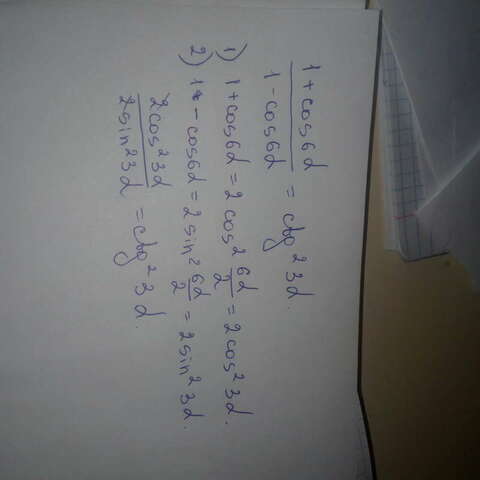 1 + cos 6α / 1 - cos 6α = ctg² 3α.
1) 1 + cos 6α = 2 cos² 6α/2 = 2 cos² 3α.
2) 1 - cos 6α = 2 sin² 6α/2 = 2 sin² 3α.
2 cos² 3α / 2 sin² 3α = ctg² 3α.